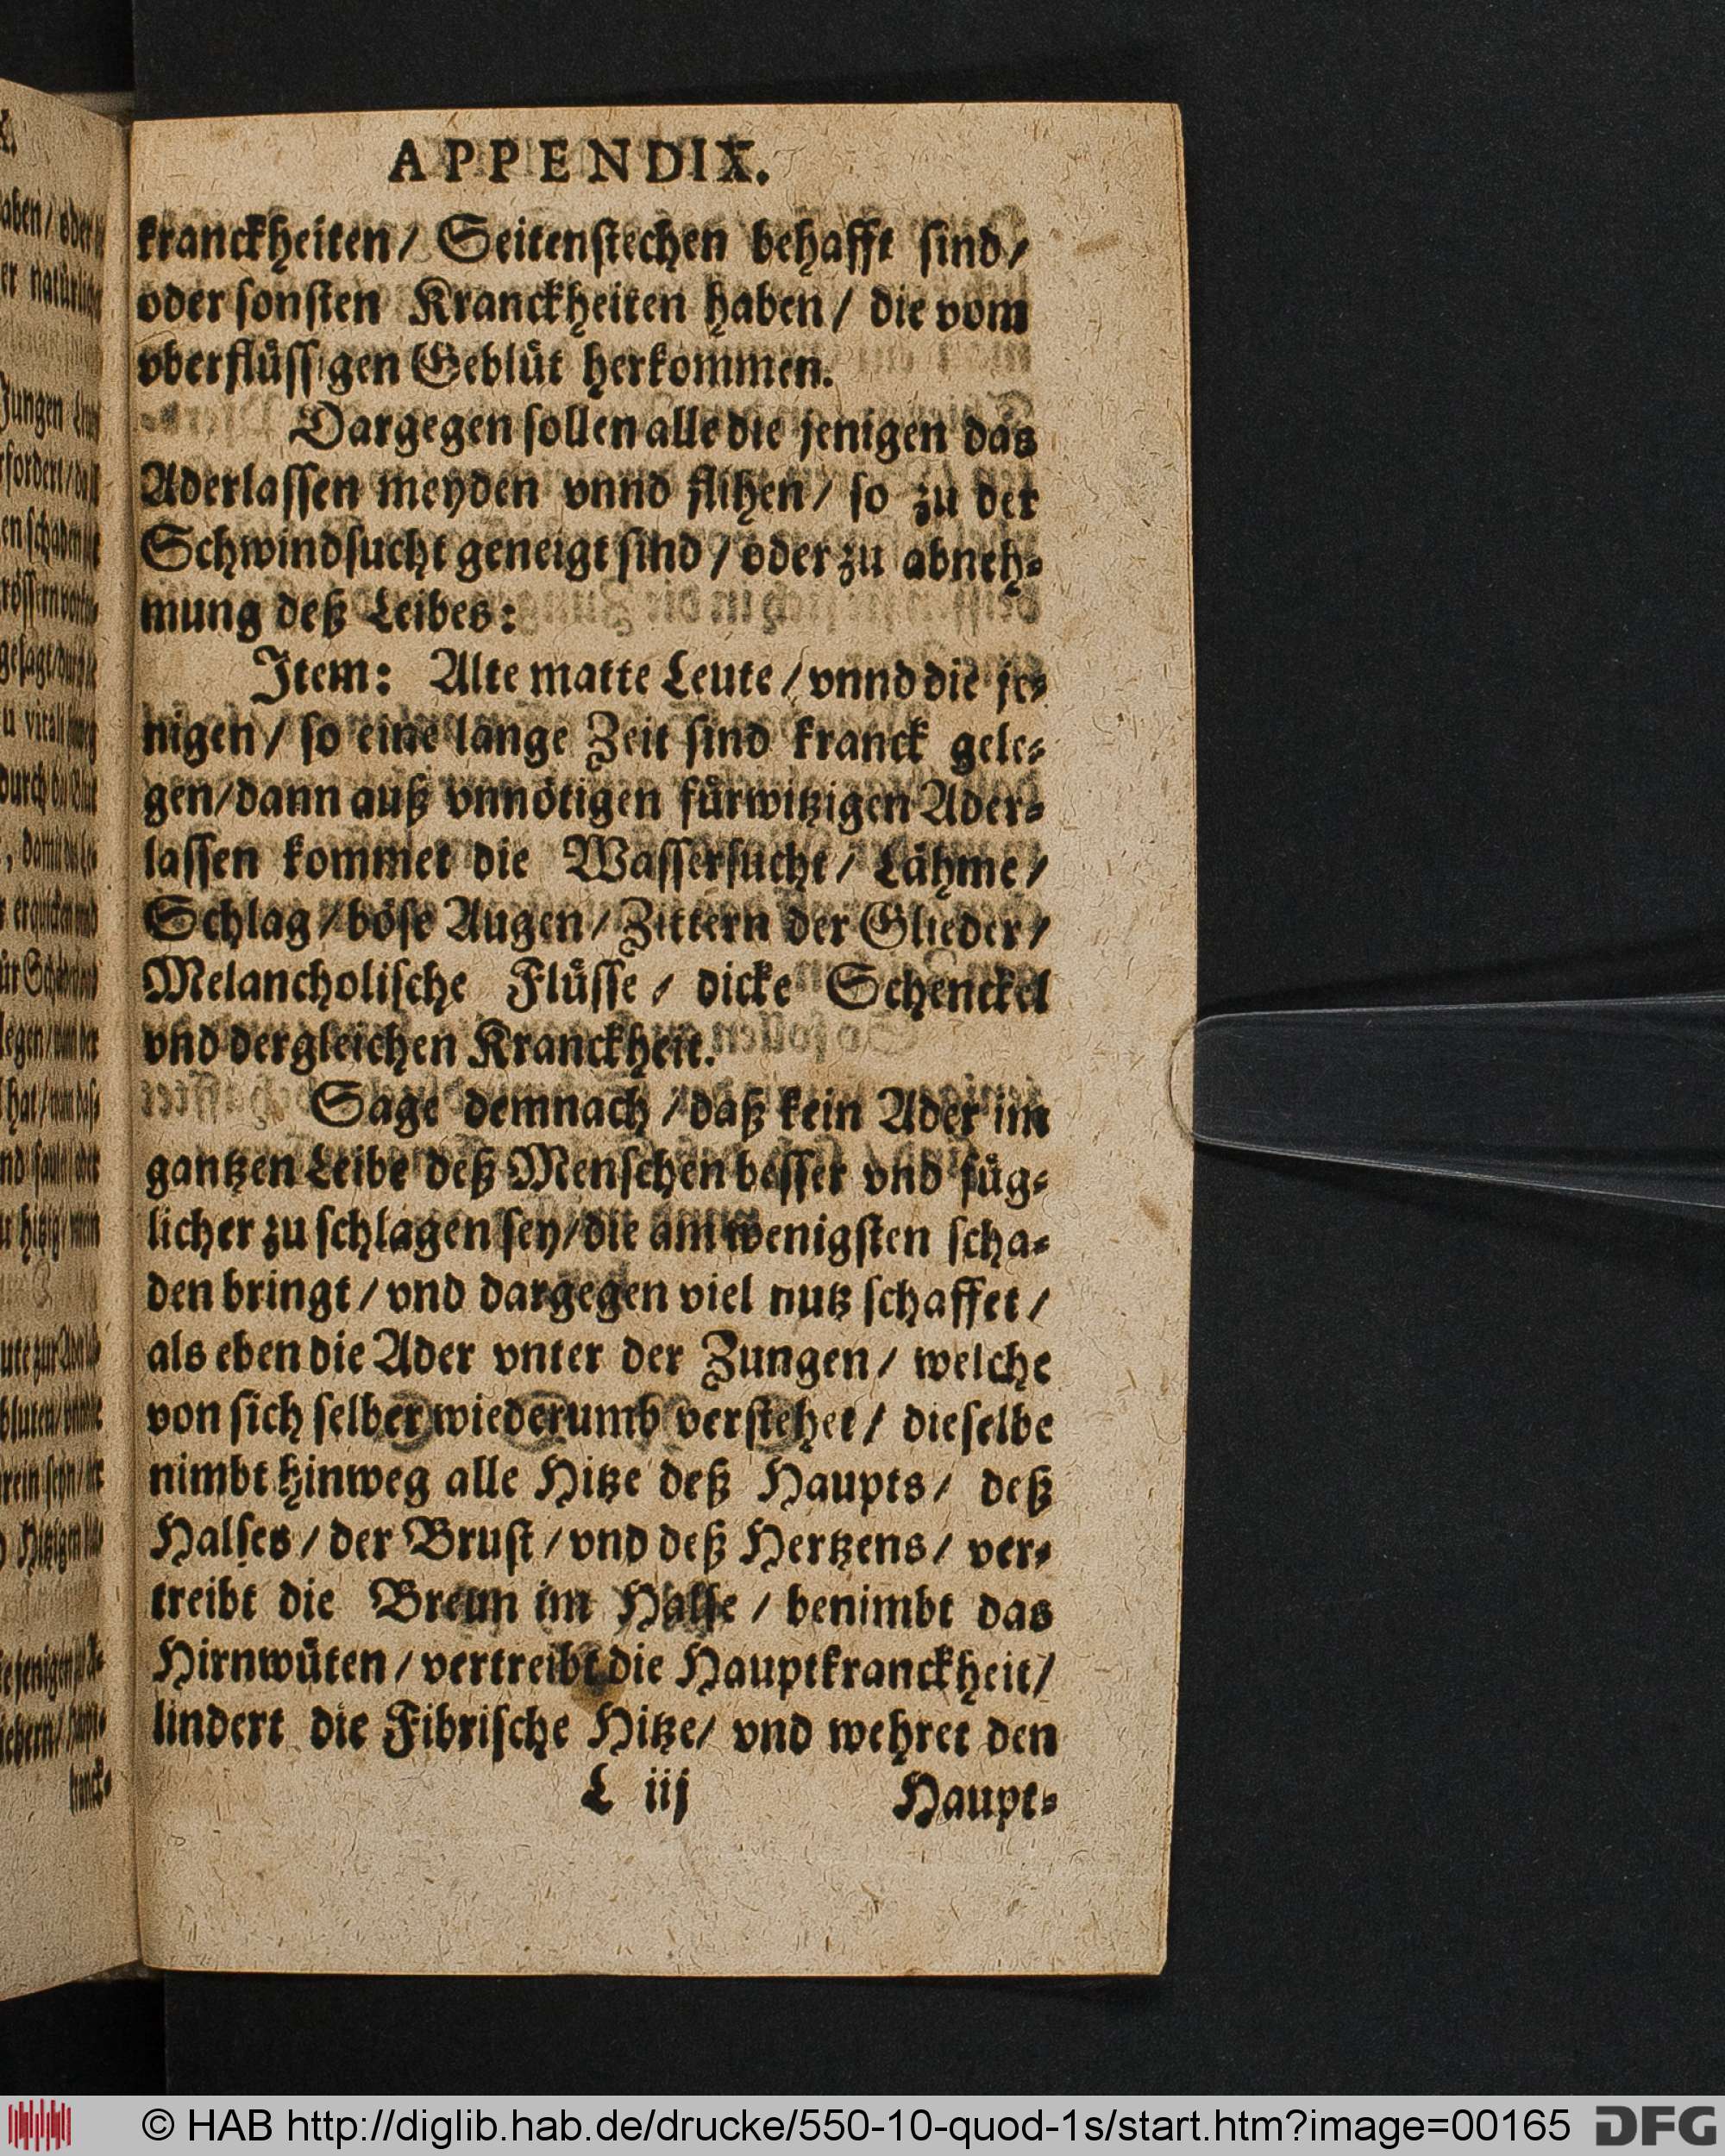 APPENDIX.
kranckheiten/ Seitenstechen behafft sind/
oder sonsten Kranckheiten haben/ die vom
vberflüssigen Geblüt herkommen.
Dargegen sollen alle die jenigen das
Aderlassen meyden vnnd flihen/ so zu der
Schwindsucht geneigt sind/ oder zu abneh-
mung deß Leibes:
Item: Alte matte Leute/ vnnd die je-
nigen/ so eine lange Zeit sind kranck gele-
gen/ dann auß vnnötigen fürwitzigen Ader-
lassen kommet die Wassersucht/ Lähme/
Schlag/ böse Augen/ Zittern der Glieder/
Melancholische Flüsse/ dicke Schenckel
vnd dergleichen Kranckheit.
Sage demnach/ daß kein Ader im
gantzen Leibe deß Menschen besser vnd füg-
licher zu schlagen sey/ die am wenigsten scha-
den bringt/ vnd dargegen viel nutz schaffet/
als eben die Ader vnter der Zungen/ welche
von sich selber wiederumb verstehet/ dieselbe
nimbt hinweg alle Hitze deß Haupts/ deß
Halses/ der Brust/ vnd deß Hertzens/ ver-
treibt die Breun im Halse/ benimbt das
Hirnwüten/ vertreibt die Hauptkranckheit/
lindert die Fibrische Hitze/ vnd wehret den
L iij Haupt-
© HAB http://diglib.hab.de/drucke/550-10-quod-1s/start.htm?image=00165 DFG